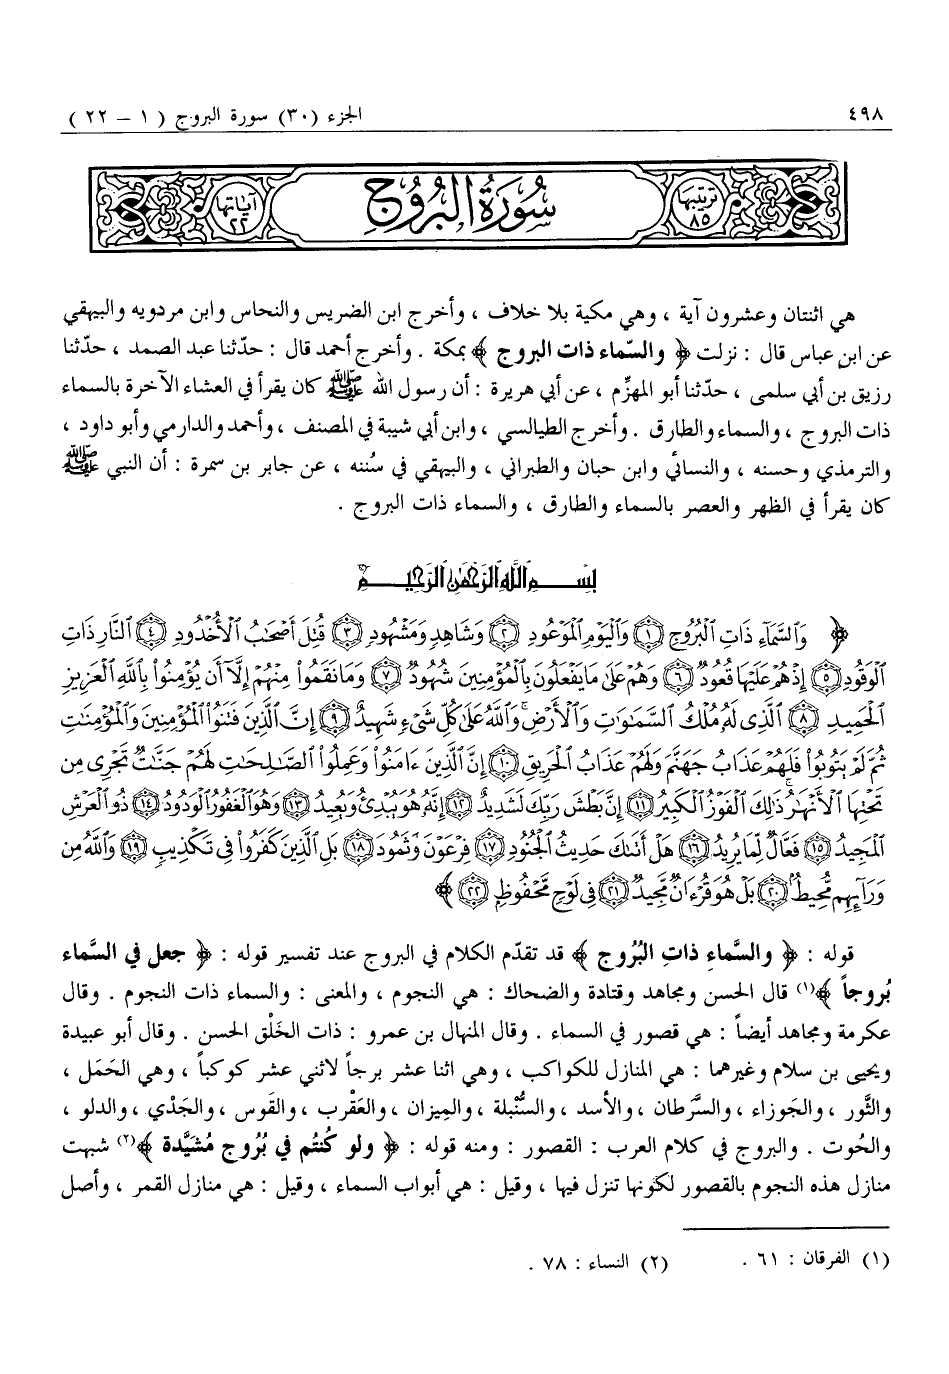 ٤٩٨
الجزء (٣٠) سورة البروج ( ١ – ٢٢ )
ترتيبها ٨٥
سورة البروج
آياتها ٢٢
هي اثنتان وعشرون آية ، وهي مكية بلا خلاف ، وأخرج ابن الضريس والنحاس وابن مردويه والبيهقي
عن ابن عباس قال : نزلت ﴿ والسّماء ذات البروج ﴾ بمكة . وأخرج أحمد قال : حدّثنا عبد الصمد ، حدّثنا
رزيق بن أبي سلمى ، حدّثنا أبو المهزِّم ، عن أبي هريرة : أن رسول الله ﷺ كان يقرأ في العشاء الآخرة بالسماء
ذات البروج ، والسماء والطارق . وأخرج الطيالسي ، وابن أبي شيبة في المصنف ، وأحمد والدارمي وأبو داود ،
والترمذي وحسنه ، والنسائي وابن حبان والطبراني ، والبيهقي في سُننه ، عن جابر بن سمرة : أن النبي ﷺ
كان يقرأ في الظهر والعصر بالسماء والطارق ، والسماء ذات البروج .
بسم الله الرحمن الرحيم
﴿ وَٱلسَّمَآءِ ذَاتِ ٱلْبُرُوجِ ١ وَٱلْيَوْمِ ٱلْمَوْعُودِ ٢ وَشَاهِدٍ وَمَشْهُودٍ ٣ قُتِلَ أَصْحَٰبُ ٱلْأُخْدُودِ ٤ ٱلنَّارِ ذَاتِ
ٱلْوَقُودِ ٥ إِذْ هُمْ عَلَيْهَا قُعُودٌ ٦ وَهُمْ عَلَىٰ مَا يَفْعَلُونَ بِٱلْمُؤْمِنِينَ شُهُودٌ ٧ وَمَا نَقَمُوا۟ مِنْهُمْ إِلَّآ أَن يُؤْمِنُوا۟ بِٱللَّهِ ٱلْعَزِيزِ
ٱلْحَمِيدِ ٨ ٱلَّذِى لَهُۥ مُلْكُ ٱلسَّمَٰوَٰتِ وَٱلْأَرْضِ ۚ وَٱللَّهُ عَلَىٰ كُلِّ شَىْءٍ شَهِيدٌ ٩ إِنَّ ٱلَّذِينَ فَتَنُوا۟ ٱلْمُؤْمِنِينَ وَٱلْمُؤْمِنَٰتِ
ثُمَّ لَمْ يَتُوبُوا۟ فَلَهُمْ عَذَابُ جَهَنَّمَ وَلَهُمْ عَذَابُ ٱلْحَرِيقِ ١٠ إِنَّ ٱلَّذِينَ ءَامَنُوا۟ وَعَمِلُوا۟ ٱلصَّٰلِحَٰتِ لَهُمْ جَنَّٰتٌ تَجْرِى مِن
تَحْتِهَا ٱلْأَنْهَٰرُ ۚ ذَٰلِكَ ٱلْفَوْزُ ٱلْكَبِيرُ ١١ إِنَّ بَطْشَ رَبِّكَ لَشَدِيدٌ ١٢ إِنَّهُۥ هُوَ يُبْدِئُ وَيُعِيدُ ١٣ وَهُوَ ٱلْغَفُورُ ٱلْوَدُودُ ١٤ ذُو ٱلْعَرْشِ
ٱلْمَجِيدُ ١٥ فَعَّالٌ لِّمَا يُرِيدُ ١٦ هَلْ أَتَىٰكَ حَدِيثُ ٱلْجُنُودِ ١٧ فِرْعَوْنَ وَثَمُودَ ١٨ بَلِ ٱلَّذِينَ كَفَرُوا۟ فِى تَكْذِيبٍ ١٩ وَٱللَّهُ مِن
وَرَآئِهِم مُّحِيطٌۢ ٢٠ بَلْ هُوَ قُرْءَانٌ مَّجِيدٌ ٢١ فِى لَوْحٍ مَّحْفُوظٍۭ ٢٢ ﴾
قوله : ﴿ والسَّماءِ ذاتِ البُرُوج ﴾ قد تقدّم الكلام في البروج عند تفسير قوله : ﴿ جعل في السَّماء
بُروجاً ﴾(١) قال الحسن ومجاهد وقتادة والضحاك : هي النجوم ، والمعنى : والسماء ذات النجوم . وقال
عكرمة ومجاهد أيضاً : هي قصور في السماء . وقال المنهال بن عمرو : ذات الخَلْق الحسن . وقال أبو عبيدة
ويحيى بن سلام وغيرهما : هي المنازل للكواكب ، وهي اثنا عشر برجاً لاثني عشر كوكباً ، وهي الحَمَل ،
والثَّور ، والجَوزاء ، والسَّرطان ، والأسد ، والسُّنْبلة ، والمِيزان ، والعَقْرب ، والقَوس ، والجَدْي ، والدلو ،
والحُوت . والبروج في كلام العرب : القصور : ومنه قوله : ﴿ ولو كُنتُم في بُرُوج مُشيَّدة ﴾(٢) شبهت
منازل هذه النجوم بالقصور لكونها تنزل فيها ، وقيل : هي أبواب السماء ، وقيل : هي منازل القمر ، وأصل
(١) الفرقان : ٦١ .
(٢) النساء : ٧٨ .